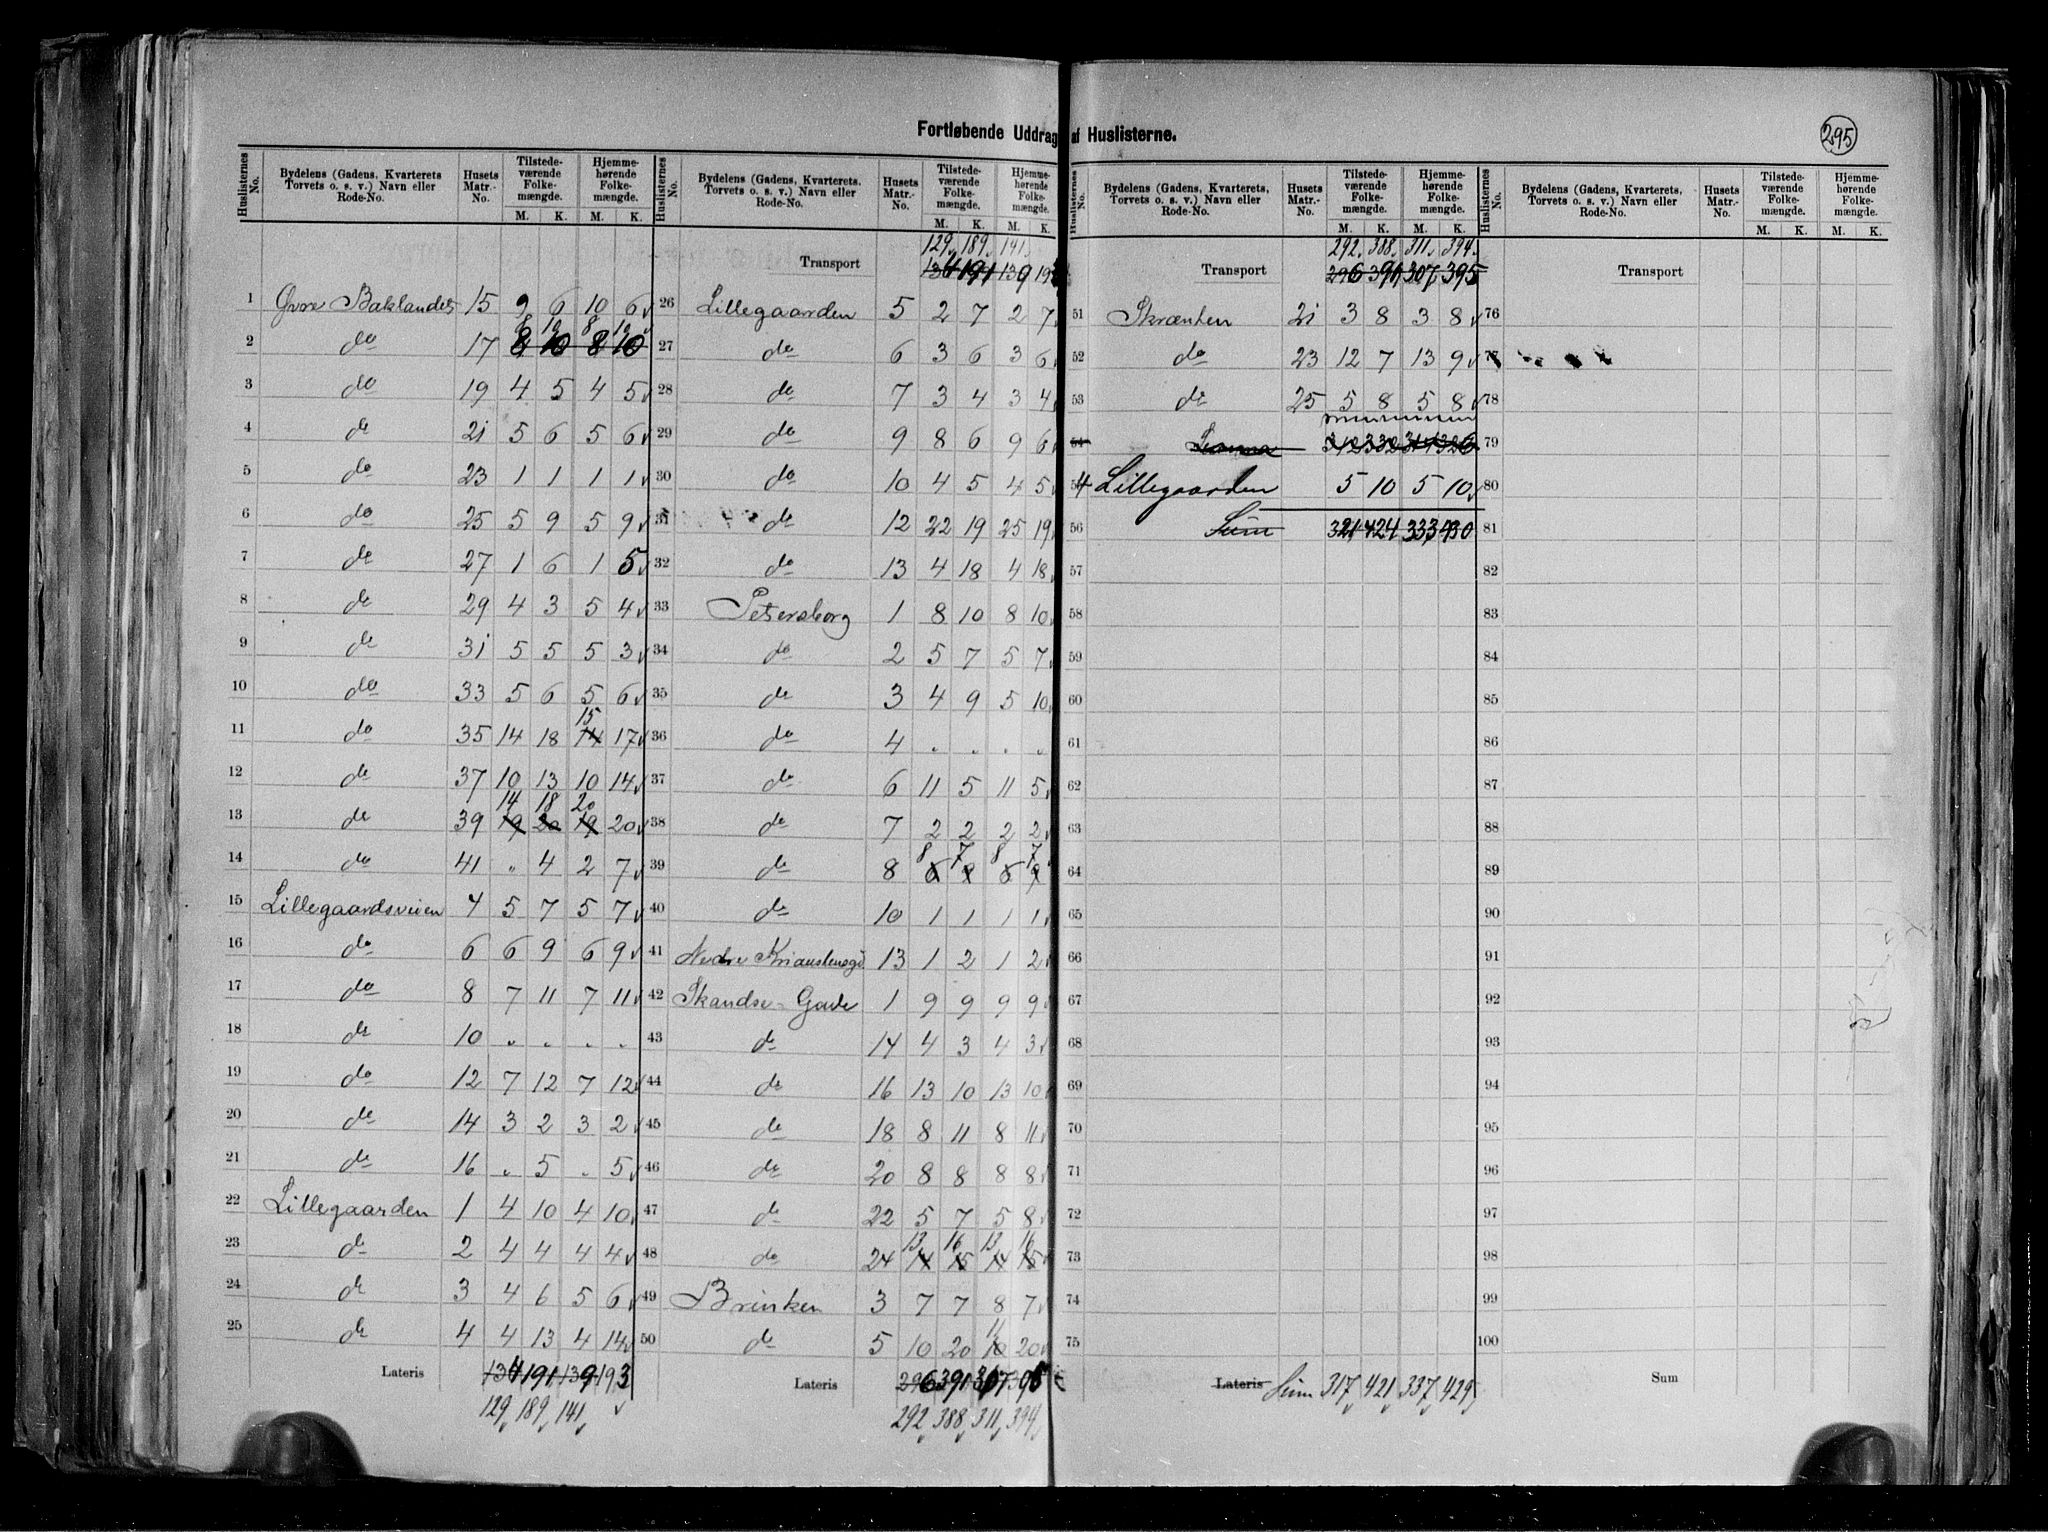 Fortløbende Uddrag af Huslisterne.
295
Huslisternes No. Bydelens (Gadens, Kvarterets, Torvets o. s. v.) Navn eller Rode-No. Husets Matr.-No. Tilstedeværende Folkemængde. M. K. Hjemmehørende Folkemængde. M. K.
1 Øvre Baklandet 15 9 6 10 6
2 do 17 8 10 8 10
3 do 19 4 5 4 5
4 do 21 5 6 5 6
5 do 23 1 1 1 1
6 do 25 5 9 5 9
7 do 27 1 6 1 5
8 do 29 4 3 5 4
9 do 31 5 5 5 3
10 do 33 5 6 5 6
11 do 35 14 18 14 15 17
12 do 37 10 13 10 14
13 do 39 19 14 20 18 19 20 20
14 do 41 " 4 2 7
15 Lillegaardsveien 4 5 7 5 7
16 do 6 6 9 6 9
17 do 8 7 11 7 11
18 do 10 " " " "
19 do 12 7 12 7 12
20 do 14 3 2 3 2
21 do 16 " 5 " 5
22 Lillegaarden 1 4 10 4 10
23 do 2 4 4 4 4
24 do 3 4 6 5 6
25 do 4 4 13 4 14
Lateris 134 191 139 193
129 189 141
Huslisternes No. Bydelens (Gadens, Kvarterets, Torvets o. s. v.) Navn eller Rode-No. Husets Matr.-No. Tilstedeværende Folkemængde. M. K. Hjemmehørende Folkemængde. M. K.
129 189 141
Transport 134 191 139 193
26 Lillegaarden 5 2 7 2 7
27 do 6 3 6 3 6
28 do 7 3 4 3 4
29 do 9 8 6 9 6
30 do 10 4 5 4 5
31 do 12 22 19 25 19
32 do 13 4 18 4 18
33 Petersborg 1 8 10 8 10
34 do 2 5 7 5 7
35 do 3 4 9 5 10
36 do 4 " " " "
37 do 6 11 5 11 5
38 do 7 2 2 2 2
39 do 8 8 7 8 7
40 do 10 1 1 1 1
41 Nedre 13 1 2 1 2
42 Skandse-Gade 1 9 9 9 9
43 do 14 4 3 4 3
44 do 16 13 10 13 10
45 do 18 8 11 8 11
46 do 20 8 8 8 8
47 do 22 5 7 5 8
48 do 24 14 13 15 16 14 13 15 16
49 Brinken 3 7 7 8 7
50 do 5 10 20 10 11 20
Lateris 296 391 307 395
292 388 311 394
Huslisternes No. Bydelens (Gadens, Kvarterets, Torvets o. s. v.) Navn eller Rode-No. Husets Matr.-No. Tilstedeværende Folkemængde. M. K. Hjemmehørende Folkemængde. M. K.
292 388 311 394
Transport 296 391 307 395
51 Skrænten 21 3 8 3 8
52 do 23 12 7 13 9
53 do 25 5 8 5 8
54
54 Lillegaarden 5 10 5 10
56 Sum 321 424 333 430
57
58
59
60
61
62
63
64
65
66
67
68
69
70
71
72
73
74
75
Lateris Sum 317 421 337 429
Huslisternes No. Bydelens (Gadens, Kvarterets, Torvets o. s. v.) Navn eller Rode-No. Husets Matr.-No. Tilstedeværende Folkemængde. M. K. Hjemmehørende Folkemængde. M. K.
Transport
76
77
78
79
80
81
82
83
84
85
86
87
88
89
90
91
92
93
94
95
96
97
98
99
100
Sum